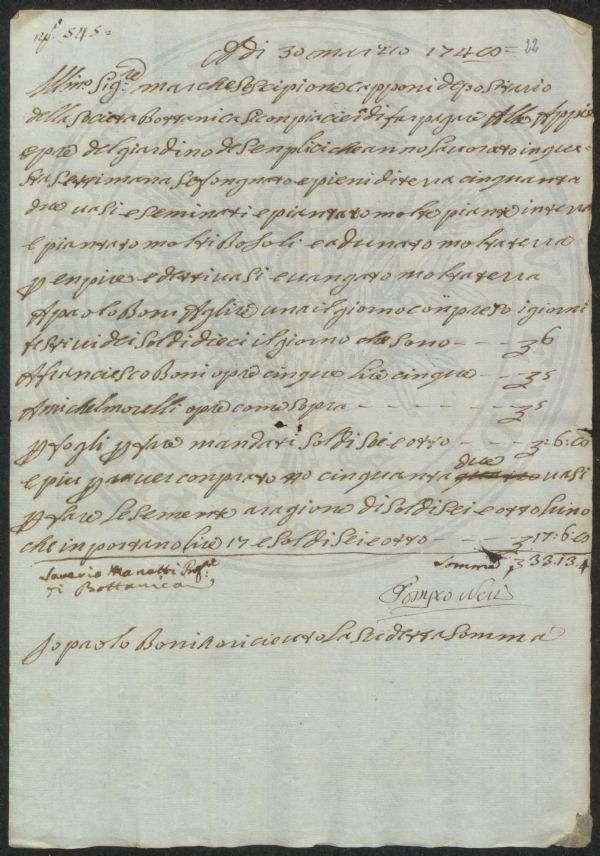 nº. 545 =
22
A dì 30 marzo 1748 =
Ill:mo Sig:re marchese scipione capponi depositario
della società Bottanica si conpiacie di far pagare alle Appie
opre del giardino de senplici che anno lavorato in que=
sta settimana se sfongnato e pieni di terra cinquanta
due vasi e seminati e piantato molte piante in terra
e piantato molti Bosoli e adunato molta terra
p enpire e detti vasi e vangato molta terra
A paolo Boni A lire una il giorno conpreso i giorni
festivi di soldi dieci il giorno che sono - - - 3 6
A franciesco Boni opre cinque lire cinque - - - 3 5
A michel morelli opre come sopra - - - - - - 3 5
p fogli p fare mandati soldi sei e otto - - - 3 : 6 : 8
e piu p aver conprato nº cinquanta due vasi
p fare le semente a ragione di soldi sei e otto l'uno
che inportano lire 17 e soldi sei e otto - - - - 3 17 : 6 : 8
Saverio Manetti Prof:re
di Bottanica
Somma 3 33.13.4
Pompeo Neri
Io paolo Boni o riceuto la sudetta somma